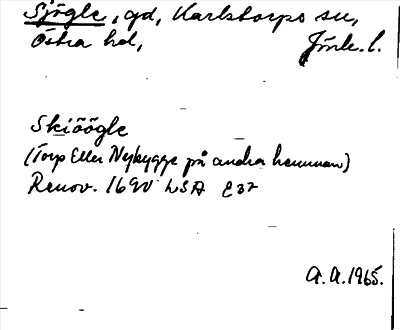 Sjögle, gd, Karlstorps sn,
Östra hd, Jönk. l.
Skiöögle
(Torp Eller Nybygge på andra hemman)
Renov. 1690 LSA E37
A.A. 1965.